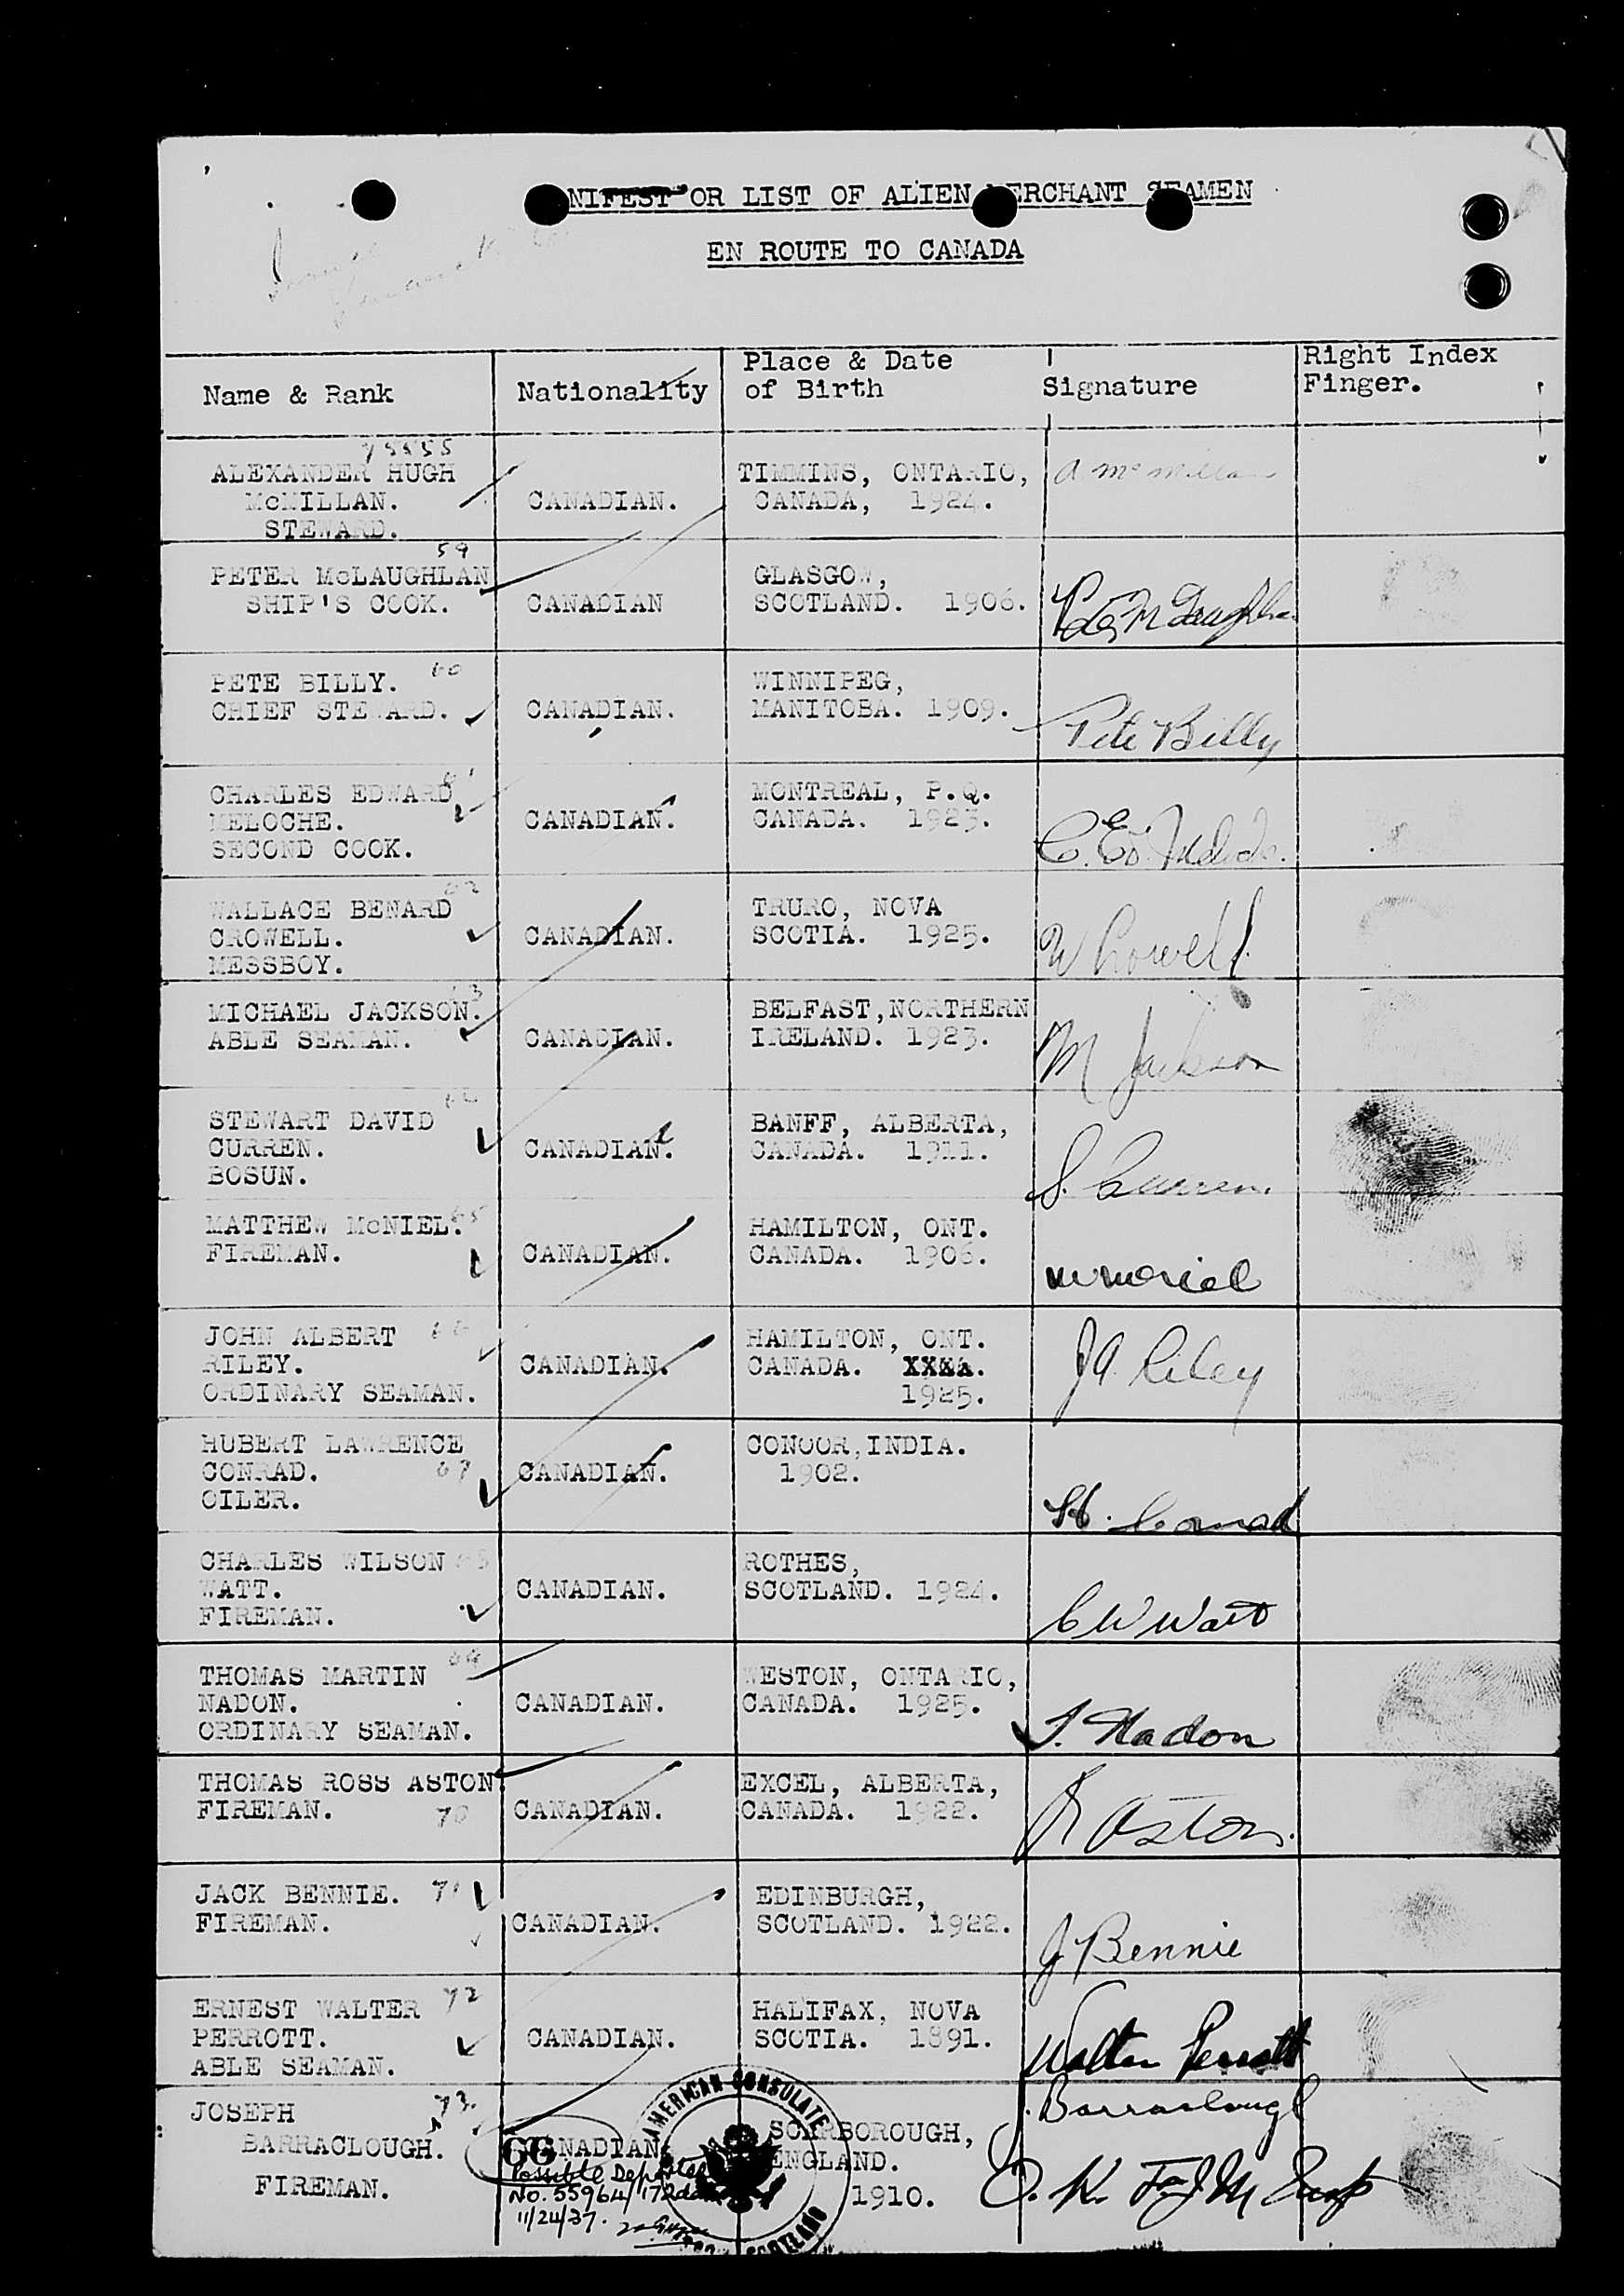 NIFEST OR LIST OF ALIEN MERCHANT SEAMEN
EN ROUTE TO CANADA
Name & Rank
Nationality
Place & Date
of Birth
Signature
Right Index
Finger.
ALEXANDER HUGH
McMILLAN.
STEWARD.
CANADIAN.
TIMMINS, ONTARIO,
CANADA, 1924.
A McMillan
59
PETER McLAUGHLAN
SHIP'S COOK.
CANADIAN
GLASGOW,
SCOTLAND. 1906.
60
PETE BILLY.
CHIEF STEWARD.
CANADIAN.
WINNIPEG,
MANITOBA. 1909.
Pete Billy
61
CHARLES EDWARD
MELOCHE.
SECOND COOK.
CANADIAN.
MONTREAL, P.Q.
CANADA. 1923.
62
WALLACE BENARD
CROWELL.
MESSBOY.
CANADIAN.
TRURO, NOVA
SCOTIA. 1925.
W Crowell.
63
MICHAEL JACKSON.
ABLE SEAMAN.
CANADIAN.
BELFAST,NORTHERN
IRELAND. 1923.
M Jackson
STEWART DAVID
CURREN.
BOSUN.
CANADIAN.
BANFF, ALBERTA,
CANADA. 1911.
S. Curren.
65
MATTHEW McNIEL.
FIREMAN.
CANADIAN.
HAMILTON, ONT.
CANADA. 1906.
66
JOHN ALBERT
RILEY.
ORDINARY SEAMAN.
CANADIAN.
HAMILTON, ONT.
CANADA.
1925.
J A. Riley
HUBERT LAWRENCE
CONRAD. 67
OILER.
CANADIAN.
CONOOR,INDIA.
1902.
H. Conrad
CHARLES WILSON
WATT.
FIREMAN.
CANADIAN.
ROTHES,
SCOTLAND. 1924.
C W Watt
69
THOMAS MARTIN
NADON.
ORDINARY SEAMAN.
CANADIAN.
WESTON, ONTARIO,
CANADA. 1925.
T. Nadon
THOMAS ROSS ASTON
FIREMAN. 70
CANADIAN.
EXCEL, ALBERTA,
CANADA. 1922.
Aston.
JACK BENNIE. 71
FIREMAN.
CANADIAN.
EDINBURGH,
SCOTLAND. 1922.
J Bennie
ERNEST WALTER 72
PERROTT.
ABLE SEAMAN.
CANADIAN.
HALIFAX, NOVA
SCOTIA. 1891.
Walter Perrott
JOSEPH 73.
BARRACLOUGH.
FIREMAN.
66
CANADIAN
Possible Deportee
No. 55964/172
11/24/37.
AMERICAN CONSULATE
SCOTLAND
SCARBOROUGH,
ENGLAND.
1910.
J. Barraclough
O. K.